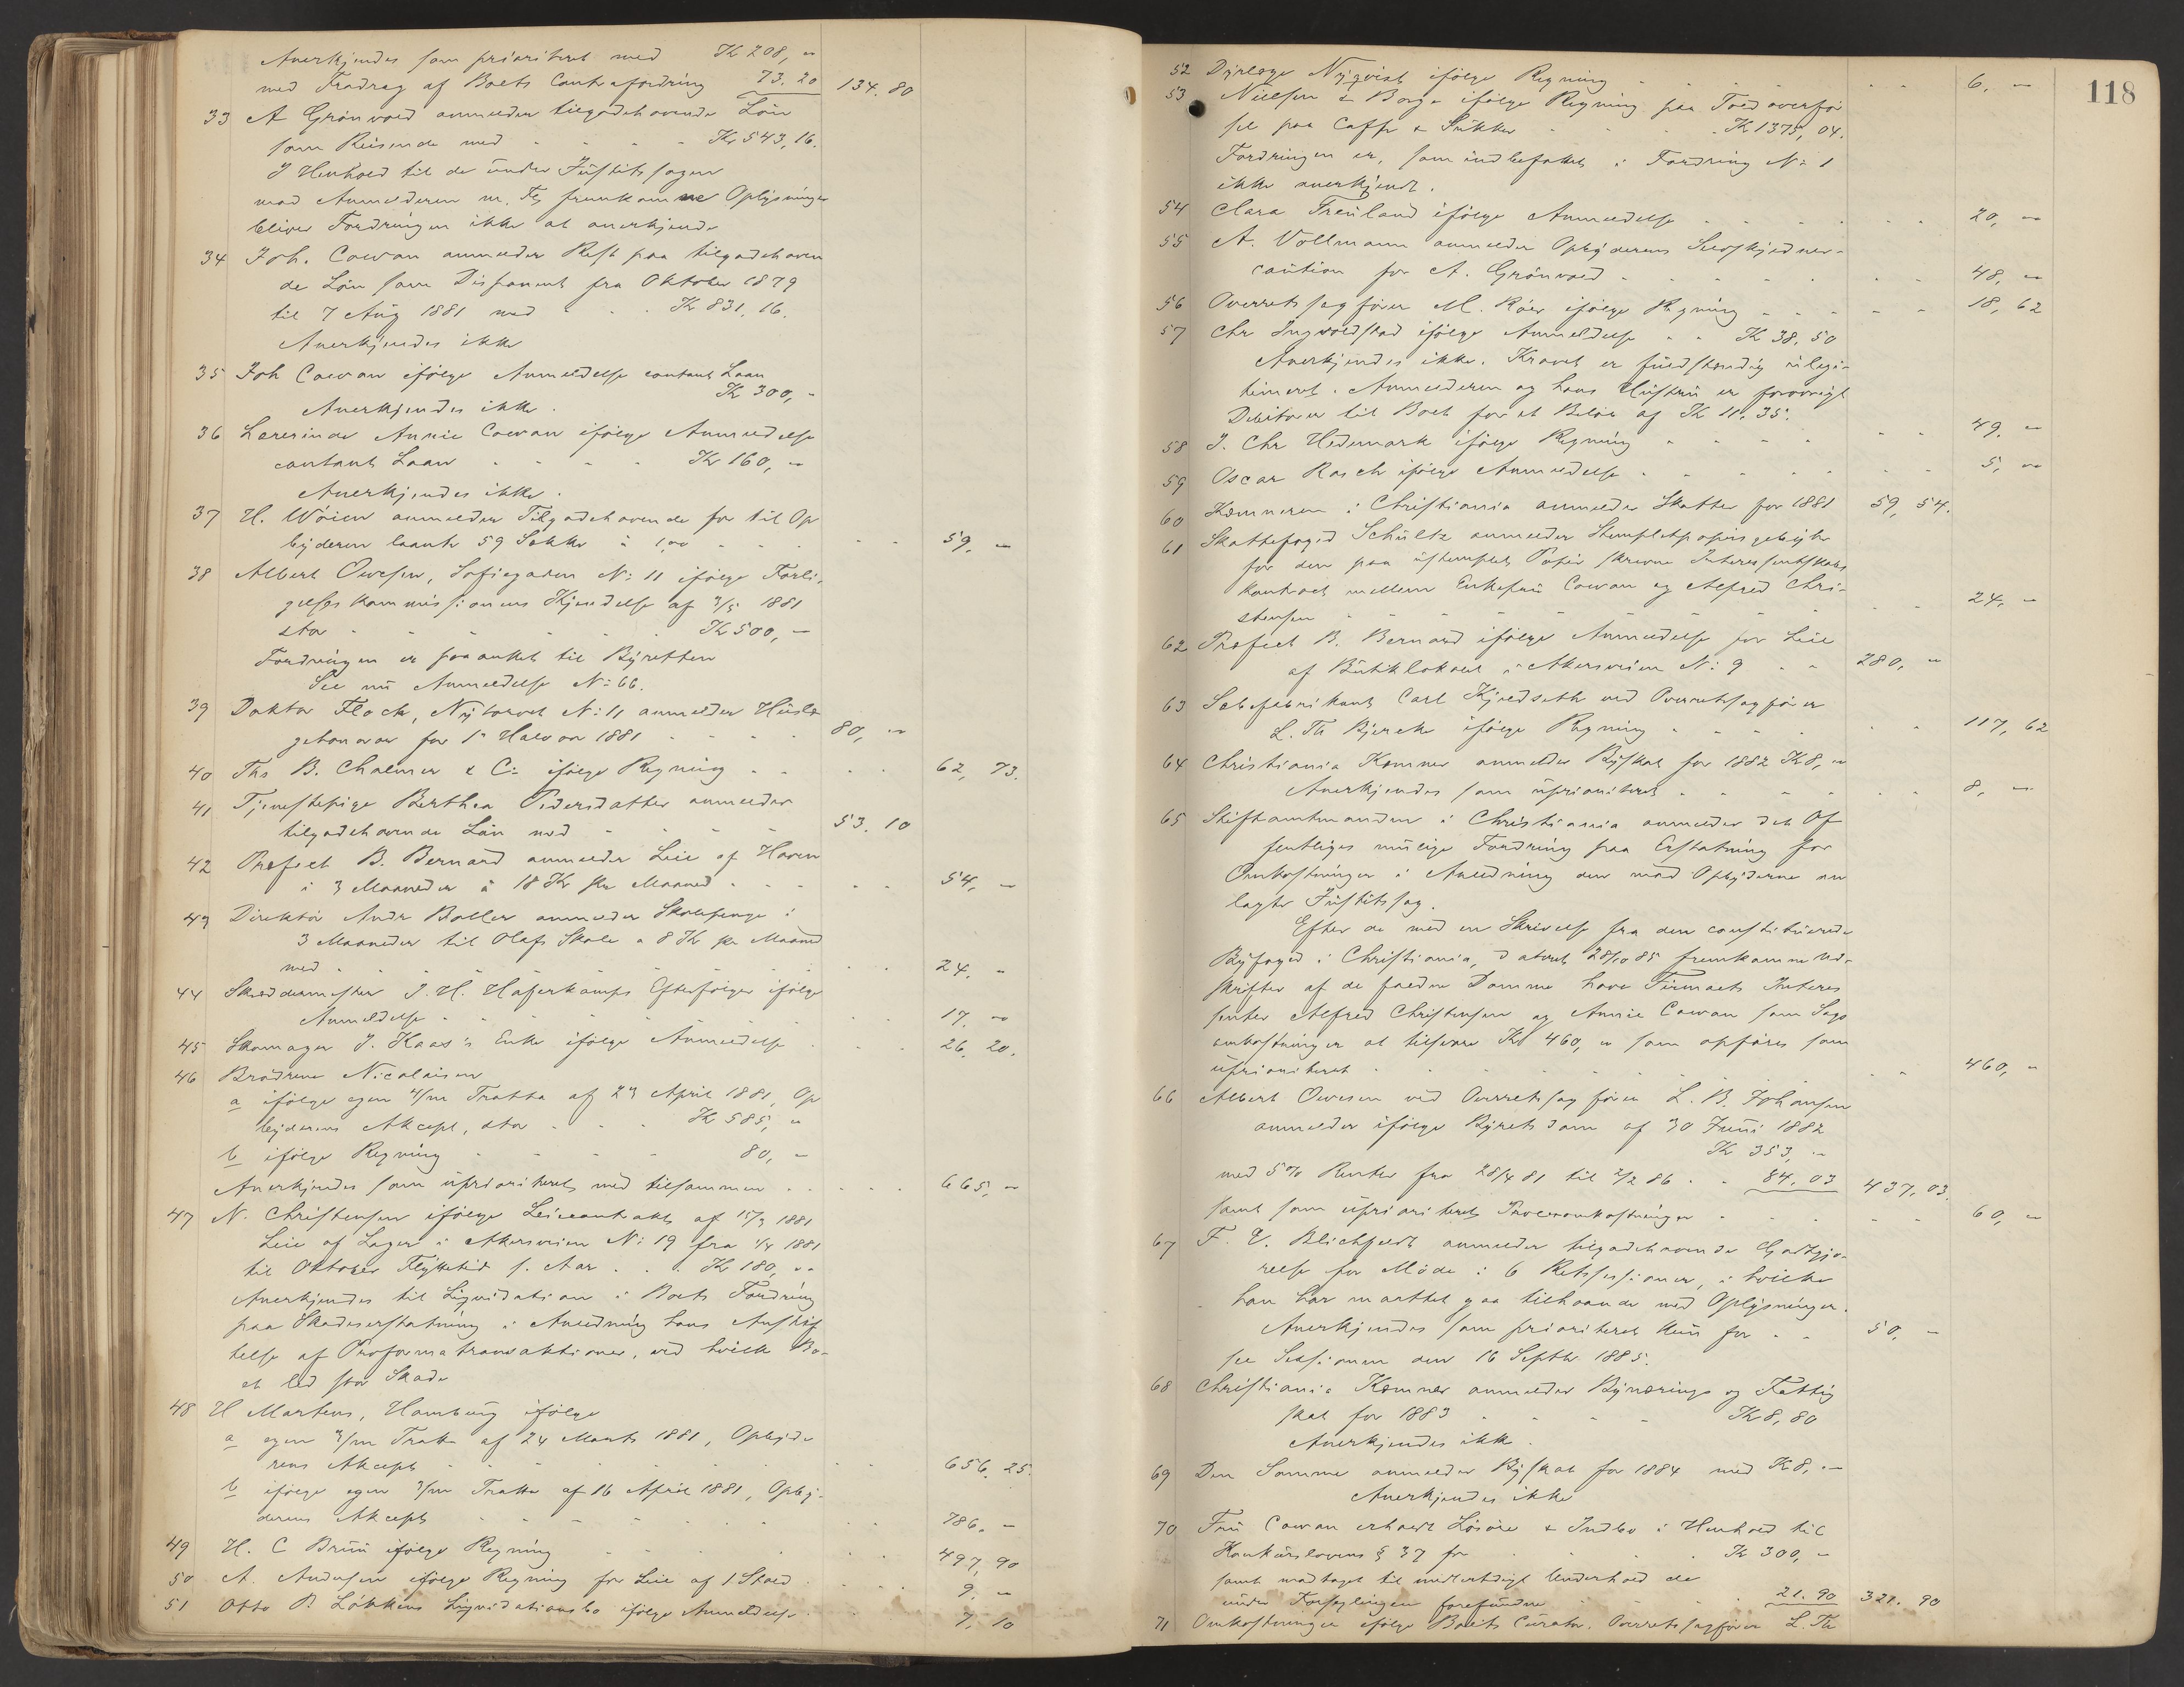 Anerkjendes som prioriteret med Kr 208, "
med Fradrag af Boets Contrafordring 73. 20 134. 80
33 A Grönvold anmelder tilgodehavende Lön
som Reisende med - - - - Kr 543, 16.
I Henhold til de under Justitssagen
mod Anmelderen m. Fl fremkomne Oplysninger
bliver Fordringen ikke at anerkjende
34 Joh. Cowan anmelder Rest paa tilgodehaven
de Lön som Disponent fra Oktober 1879
til 7 Aug 1881 med - - - Kr 831, 16.
Anerkjendes ikke
35 Joh Cowan ifölge Anmeldelse contant Laan
Kr 300, -
Anerkjendes ikke.
36 Lærerinde Annie Cowan ifölge Anmeldelse
contant Laan - - - - Kr 160, "
Anerkjendes ikke.
37 H. Wöien anmelder Tilgodehavende for til Op
byderen laante 59 Sække à 1,00 - - - - - 59, "
38 Albert Owesen, Sofiegaden No: 11 ifölge Forli-
gelseskommissionens Kjendelse af 3/5 1881
stor - - - - - - Kr 500, -
Fordringen er paaanket til Byretten
See nu Anmeldelse No: 66.
39 Doktor Flock, Nytorvet No: 11 anmelder Huslæ
gehonorar for 1ste Halvaar 1881 - - - - 80, "
40 Ths B. Chalmer & Co: ifölge Regning - - - - 62, 73.
41 Tjenestepige Berthea Pedersdatter anmelder
tilgodehavende Lön med - - - - 53. 10
42 Profect B. Bernard anmelder Leie af Haven
i 3 Maaneder à 18 Kr pr Maaned - - - - - 54, -
43 Direktör Andr Boller anmelder Skolepenge i
3 Maaneder til Olafs Skole a 8 Kr pr Maaned
med - - - - - - - - - 24. -
44 Skræddermester J. H. Haferkamps Efterfölger ifölge
Anmeldelse - - - - - - - - 17. "
45 Skomager J. Kaas's Enke ifölge Anmeldelse - - - 26. 20.
46 Brödrene Nicolaisen
a ifölge egen 4/m Tratta af 23 April 1881, Op
byderens Akcept, stor - - - Kr 585, "
b ifölge Regning - - - - - 80, -
Anerkjendes som uprioriteret med tilsammen - - - - - 665, "
47 N. Christensen ifölge Leiecontrakt af 15/3 1881
Leie af Lager i Akersveien No: 19 fra 1/4 1881
til Oktober Flyttetid s. Aar . . . Kr 180, "
Anerkjendes til Liqvidation i Boets Fordring
paa Skadeserstatning i Anledning hans Anstif
telse af Proformatransaktioner, ved hvilke Bo-
et led stor Skade
48 H Martens, Hamburg ifölge
a egen 3/m Tratta af 24 Marts 1881, Opbyde
rens Akcept - - - - - - - 656. 25.
b ifölge egen 3/m Tratta af 16 April 1881, Opby-
derens Akcept - - - - - - - - 786. -
49 H. C Bruu ifölge Regning - - - - - - 497, 90
50 A. Andersen ifölge Regning for Leie af 1 Stald - - - 9. "
51 Otto P. Lökkens Liqvidationsbo ifölge Anmeldelse - - 7, 10
118
52 Dyrlæge Nyqvist ifölge Regning - - - - - 6. -
53 Nielsen & Borge ifölge Regning paa Toldoverför
sel paa Caffe & Sukker - - - . Kr 1375, 04.
Fordringen er, som indbefattet i Fordring No: 1
ikke anerkjendt.
54 Clara Treuland ifölge Anmeldelse - - - - - - 20, "
55 A. Vollmann anmelder Opbyderens Selvskyldner-
caution for A. Grönvold - - - - - - - 48, "
56 Overretssagförer M. Röer ifölge Regning - - - - - 18, 62
57 Chr Ingvoldstad ifölge Anmeldelse - - Kr 38. 50
Anerkjendes ikke. Kravet er fuldstændig ulegi-
timeret. Anmelderen og hans Hustru er forövrigt
Debitorer til Boet for et Belöb af Kr 11. 35.
58 J. Chr Hedemark ifölge Regning - - - - - - 49. "
59 Oscar Rasch ifölge Anmeldelse - - - - - - 5, "
60 Kæmneren i Christiania anmelder Skatter for 1881 59, 54.
61 Skattefoged Schültz anmelder Stempletpapirsgebyhr
for den paa ustemplet Papir skrevne Interessentskabs
kontract mellem Enkefru Cowan og Alfred Chri-
stensen - - - - - - - - - 24, -
62 Profect B. Bernard ifölge Anmeldelse for Leie
af Butiklokale i Akersveien No: 9 - - 280, "
63 Sæbefabrikant Carl Kjeldseth ved Overretssagförer
L. Th Bjerche ifölge Regning - - - - - - 117, 62
64 Christiania Kæmner anmelder Byskat for 1882 Kr 8, "
Anerkjendes som uprioriteret - - - - - - 8, -
65 Stiftamtmanden i Christiania anmelder det Of
fentliges mulige Fordring paa Erstatning for
Omkostninger i Anledning den mod Opbyderne an
lagte Justitssag.
Efter de med en Skrivelse fra den constituerede
Byfoged i Christiania, dateret 28/10 85 fremkomne Ud-
skrifter af de faldne Domme have Firmaets Interes
senter Alfred Christensen og Annie Cowan som Sags
omkostninger at tilsvare Kr 460, " som opföres som
uprioriteret - - - - - - - - 460, "
66 Albert Owesen ved Overretssagförer L. B. Johansen
anmelder ifölge Byretsdom af 30 Juni 1882
Kr 353, "
med 5% Renter fra 28/4 81 til 2/2 86 - - 84, 03 437, 03.
samt som uprioriteret Procesomkostninger - - - - - 60, -
67 F. V. Blichfeldt anmelder tilgodehavende Godtgjö-
relse for Möde i 6 Retssessioner, i hvilke
han har maattet gaa tilhaande med Oplysninger.
Anerkjendes som prioriteret kun for - - 50, -
see Sessionen den 16 Septbr 1885.
68 Christiania Kæmner anmelder Bynærings og Fattig
skat for 1883 - - - - Kr 8, 80
Anerkjendes ikke.
69 Den Samme anmelder Byskat for 1884 med Kr 8, "
Anerkjendes ikke
70 Fru Cowan erholdt Lösöre & Indbo i Henhold til
Konkurslovens § 37 for . . . Kr 300, -
samt modtaget til midlertidigt Underhold de
under Forseglingen forefundne - - - 21. 90 321. 90
71 Omkostninger ifölge Boets Curator. Overretssagförer L. Th